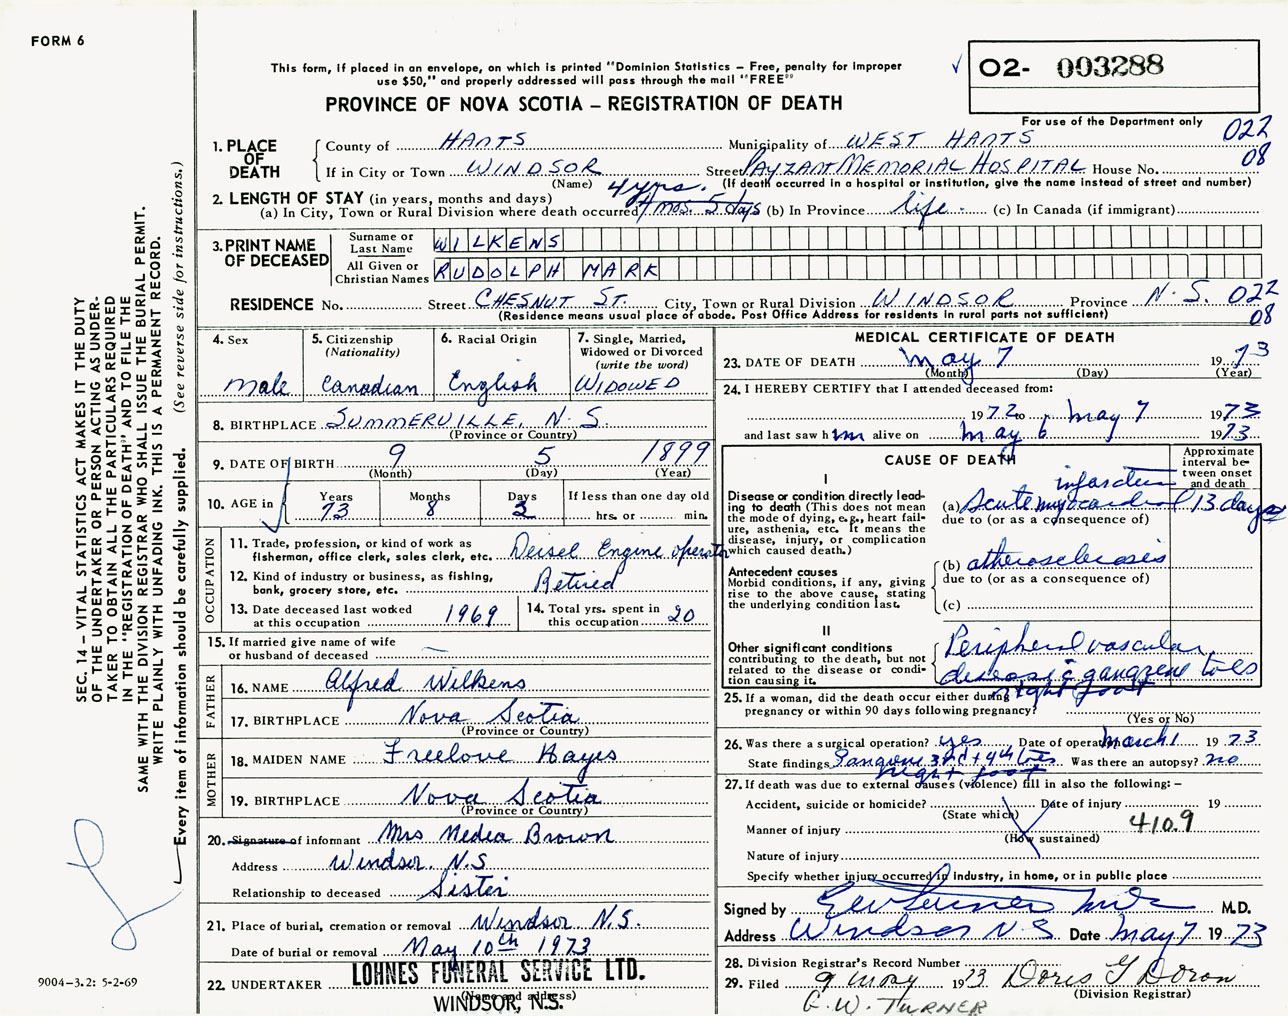 FORM 6
This form, if placed in an envelope, on which is printed "Dominion Statistics – Free, penalty for improper
use $50," and properly addressed will pass through the mail "FREE"
PROVINCE OF NOVA SCOTIA – REGISTRATION OF DEATH
02- 003288
For use of the Department only
022
08
1. PLACE OF DEATH
County of HANTS Municipality of WEST HANTS
If in City or Town WINDSOR Street PAYZANT MEMORIAL HOSPITAL House No.
(Name) (If death occurred in a hospital or institution, give the name instead of street and number)
2. LENGTH OF STAY (in years, months and days) 4 yrs.
(a) In City, Town or Rural Division where death occurred 7 mos. 5 days (b) In Province life. (c) In Canada (if immigrant)
3. PRINT NAME OF DECEASED
Surname or Last Name WILKENS
All Given or Christian Names RUDOLPH MARK
RESIDENCE No. Street CHESNUT ST. City, Town or Rural Division WINDSOR Province N.S. 022
08
(Residence means usual place of abode. Post Office Address for residents in rural parts not sufficient)
4. Sex
male
5. Citizenship
(Nationality)
Canadian
6. Racial Origin
English
7. Single, Married,
Widowed or Divorced
(write the word)
WIDOWED
8. BIRTHPLACE SUMMERVILLE, N.S.
(Province or Country)
9. DATE OF BIRTH 9 5 1899
(Month) (Day) (Year)
10. AGE in Years 73 Months 8 Days 2 If less than one day old
hrs. or min.
OCCUPATION
11. Trade, profession, or kind of work as
fisherman, office clerk, sales clerk, etc. Deisel Engine operator
12. Kind of industry or business, as fishing,
bank, grocery store, etc. Retired
13. Date deceased last worked
at this occupation 1969
14. Total yrs. spent in
this occupation 20
15. If married give name of wife
or husband of deceased —
FATHER
16. NAME Alfred Wilkens
17. BIRTHPLACE Nova Scotia
(Province or Country)
MOTHER
18. MAIDEN NAME Freelove Hayes
19. BIRTHPLACE Nova Scotia
(Province or Country)
20. Signature of informant Mrs Medea Brown
Address Windsor N.S
Relationship to deceased Sister
21. Place of burial, cremation or removal Windsor N.S.
Date of burial or removal May 10th 1973
22. UNDERTAKER LOHNES FUNERAL SERVICE LTD.
(Name and address)
WINDSOR, N.S.
MEDICAL CERTIFICATE OF DEATH
23. DATE OF DEATH May 7 1973
(Month) (Day) (Year)
24. I HEREBY CERTIFY that I attended deceased from:
1972 to May 7 1973
and last saw him alive on May 6 1973
CAUSE OF DEATH
Approximate interval between onset and death
I
Disease or condition directly leading to death (This does not mean the mode of dying, e.g., heart failure, asthenia, etc. It means the disease, injury, or complication which caused death.)
(a) Acute myocardial infarction 13 days
due to (or as a consequence of)
Antecedent causes
Morbid conditions, if any, giving rise to the above cause, stating the underlying condition last.
(b) atherosclerosis
due to (or as a consequence of)
(c)
II
Other significant conditions
contributing to the death, but not related to the disease or condition causing it.
Peripheral vascular
disease c gangrene toes
right foot
25. If a woman, did the death occur either during
pregnancy or within 90 days following pregnancy?
(Yes or No)
26. Was there a surgical operation? yes Date of operation March 1 1973
State findings Gangrene 3rd + 4th toes Was there an autopsy? no
right foot
27. If death was due to external causes (violence) fill in also the following: –
Accident, suicide or homicide? Date of injury 19
(State which)
Manner of injury 410.9
(How sustained)
Nature of injury
Specify whether injury occurred in industry, in home, or in public place
Signed by M.D.
Address Windsor N S Date May 7 1973
28. Division Registrar's Record Number
29. Filed 9 May 1973 Doris G Doran
(Division Registrar)
G.W. TURNER
SEC. 14 – VITAL STATISTICS ACT MAKES IT THE DUTY
OF THE UNDERTAKER OR PERSON ACTING AS UNDER-
TAKER TO OBTAIN ALL THE PARTICULARS REQUIRED
IN THE "REGISTRATION OF DEATH" AND TO FILE THE
SAME WITH THE DIVISION REGISTRAR WHO SHALL ISSUE THE BURIAL PERMIT.
WRITE PLAINLY WITH UNFADING INK. THIS IS A PERMANENT RECORD.
Every item of information should be carefully supplied. (See reverse side for instructions.)
9004-3.2: 5-2-69